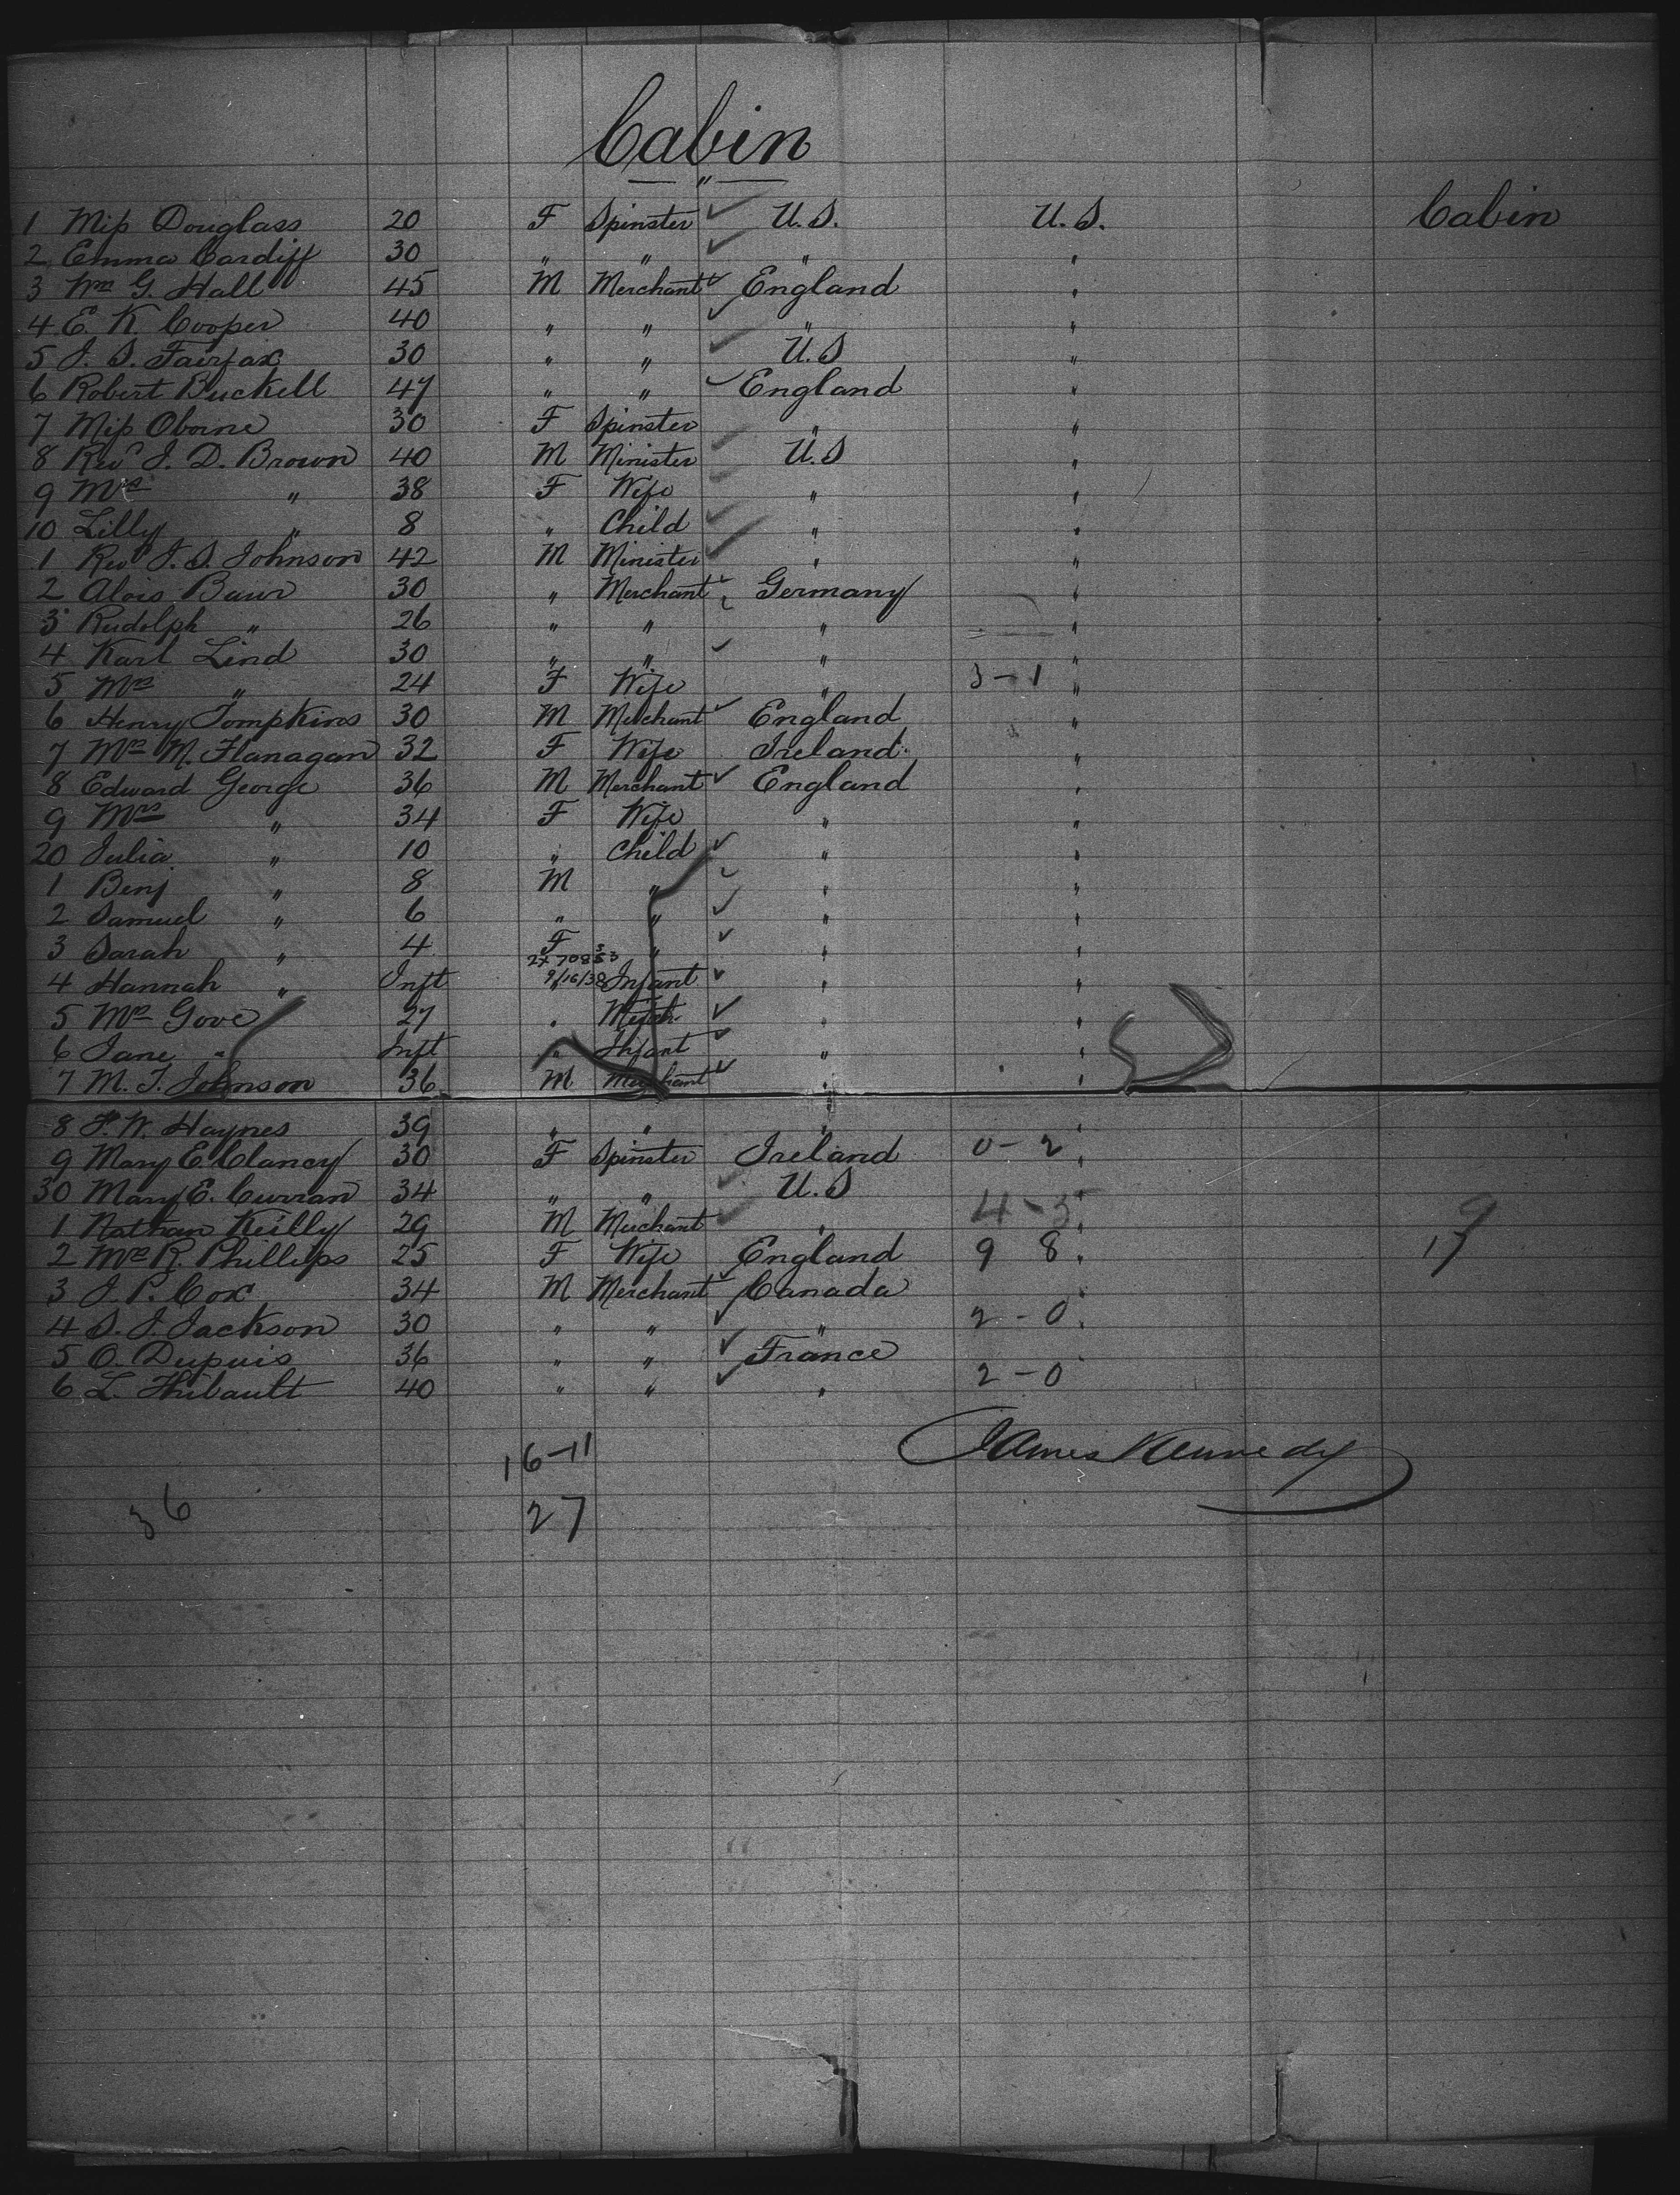 Cabin
"
1 Miss Douglass 20 F Spinster U.S. U.S. Cabin
2 Emma Cardiff 30 " " " "
3 Wm G. Hall 45 M Merchant England "
4 E. K. Cooper 40 " " " "
5 J. S. Fairfax 30 " " U.S "
6 Robert Buckell 47 " " England "
7 Miss Oborne 30 F Spinster " "
8 Revd J. D. Brown 40 M Minister U.S "
9 Mrs " 38 F Wife " "
10 Lilly " 8 " Child " "
1 Revd J. S. Johnson 42 M Minister " "
2 Alois Baur 30 " Merchant Germany "
3 Rudolph " 26 " " " "
4 Karl Lind 30 " " " "
5 Mrs " 24 F Wife " 3-1 "
6 Henry Tompkins 30 M Merchant England "
7 Mrs M. Flanagan 32 F Wife Ireland "
8 Edward George 36 M Merchant England "
9 Mrs " 34 F Wife " "
20 Julia " 10 " Child " "
1 Benj " 8 M " " "
2 Samuel " 6 " " " "
3 Sarah " 4 F " " "
2x 70833
4 Hannah " Inft " 9/16/38 Infant " "
5 Mrs Gove 27 " " "
6 Jane " Inft " Infant " "
7 M. J. Johnson 36 M Merchant " "
8 F. W. Haynes 39 " " " "
9 Mary E. Clancy 30 F Spinster Ireland 0-2 "
30 Mary E. Curran 34 " " U.S "
1 Nathan Keilly 29 M Merchant " 4-5 " 9
2 Mrs R. Phillips 25 F Wife England 9 8 " 17
3 J. P. Cox 34 M Merchant Canada "
4 S. J. Jackson 30 " " " 2-0 "
5 O. Dupuis 36 " " France "
6 L. Thibault 40 " " " 2-0
16-11 James Kennedy
36 27